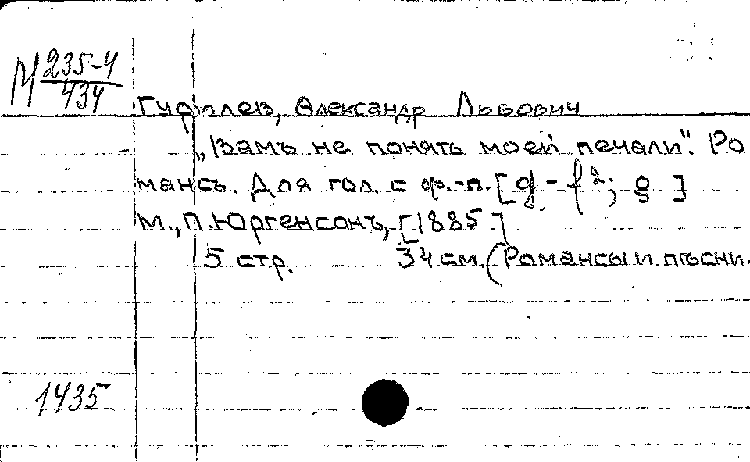 М 235-4
434
Гурилев, Александр Львович
„Вамъ не понять моей печали". Ро
мансъ. Для гол. с ф.-п. [g - f²; g]
М., П. Юргенсонъ, [1885.]
5 стр. 34 см. (Романсы и пѣсни.
1435